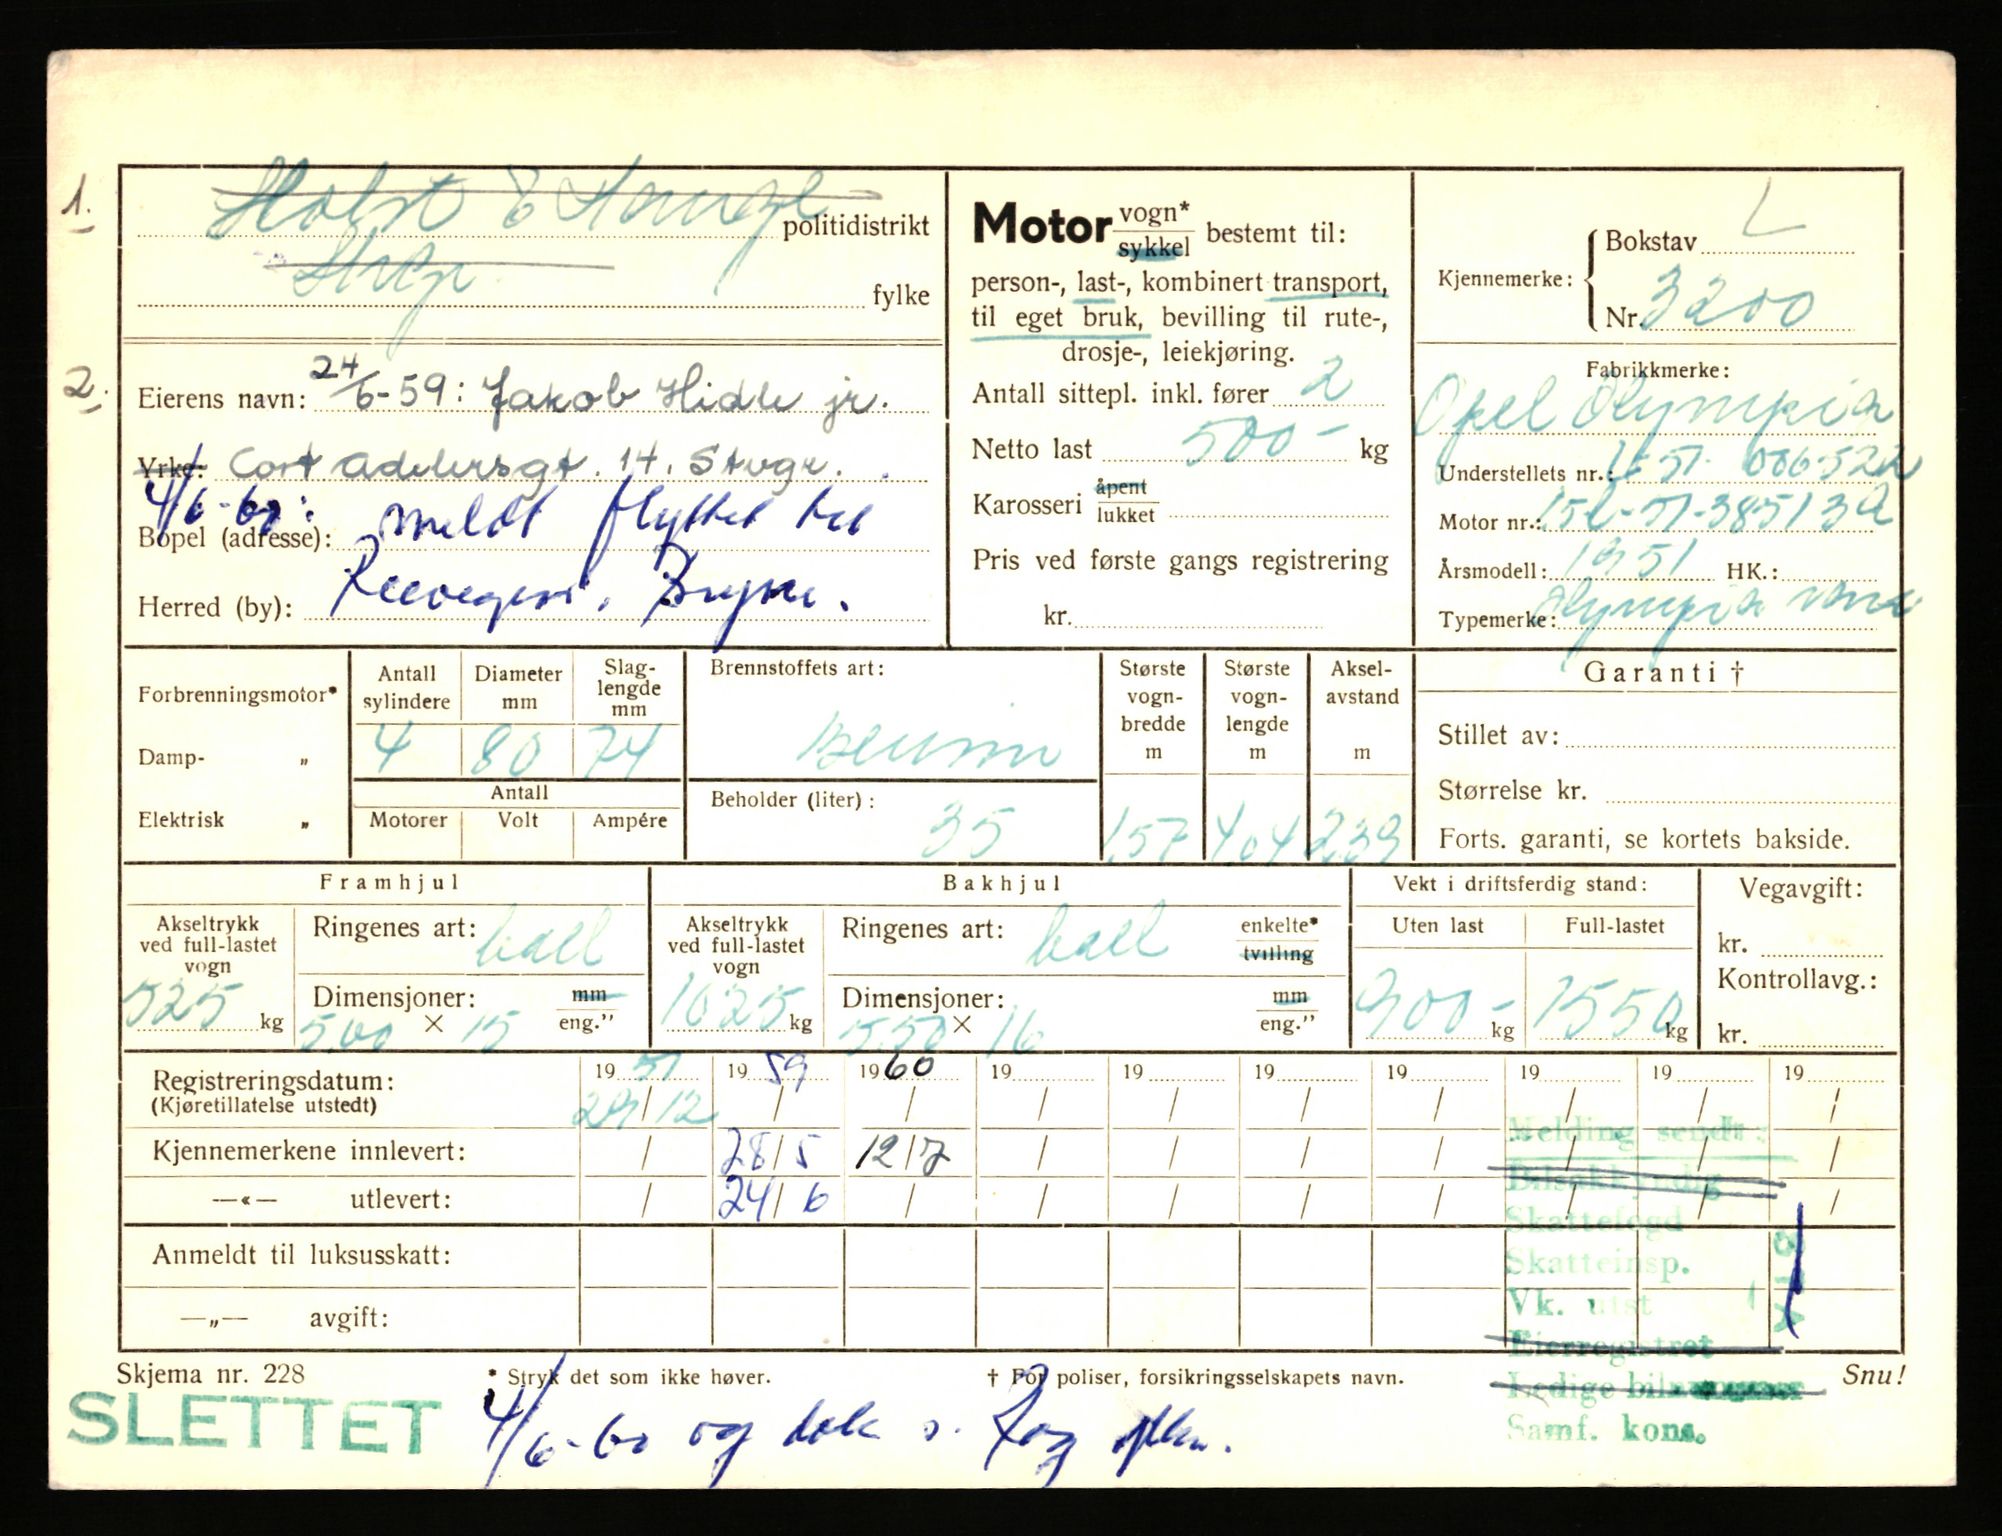 1.
politidistrikt
fylke
2.
Eierens navn: 24/6-59: Jakob Hidle jr.
Yrke: Cort Adelersgt. 14. Stvgr.
4/6-60: meldt flyttet til
Bopel (adresse):
Herred (by): Bryne.
Motor vogn* sykkel bestemt til:
person-, last-, kombinert transport,
til eget bruk, bevilling til rute-,
drosje-, leiekjøring.
Antall sittepl. inkl. fører 2
Netto last 500- kg
Karosseri åpent lukket
Pris ved første gangs registrering
kr.
Kjennemerke: Bokstav L
Nr. 3200
Fabrikkmerke:
Opel Olympia
Understellets nr.:
Motor nr.:
Årsmodell: 1951 HK.:
Typemerke: Olympia
Forbrenningsmotor*
Damp- „
Elektrisk „
Antall sylindere 4
Diameter mm 80
Slaglengde mm 74
Antall
Motorer Volt Ampére
Brennstoffets art:
Bensin
Beholder (liter): 35
Største vognbredde m 1,57
Største vognlengde m 4,04
Akselavstand m 2,39
Garanti †
Stillet av:
Størrelse kr.
Forts. garanti, se kortets bakside.
Framhjul
Akseltrykk ved full-lastet vogn 525 kg
Ringenes art: ball
Dimensjoner: 5,00 × 15 mm eng."
Bakhjul
Akseltrykk ved full-lastet vogn 1025 kg
Ringenes art: ball enkelte* tvilling
Dimensjoner: 5.50 × 16 mm eng."
Vekt i driftsferdig stand:
Uten last 900- kg
Full-lastet 1550 kg
Vegavgift:
kr.
Kontrollavg.:
kr.
Registreringsdatum: 19 51 19 59 19 60 19 19 19 19 19 19 19
(Kjøretillatelse utstedt) 29/12 / / / / / / / / /
Kjennemerkene innlevert: / 28/5 12/7 / / / / / / /
—«— utlevert: / 24/6 / / / / / / / /
Anmeldt til luksusskatt:
—„— avgift:
Melding sendt:
Bilsakkyndig
Skattefogd
Skatteinsp.
Vk. utst
Eierregistret
Ledige
Samf. kons.
Skjema nr. 228
* Stryk det som ikke høver.
† For poliser, forsikringsselskapets navn.
Snu!
SLETTET
4/6-60 og dok s. Rog